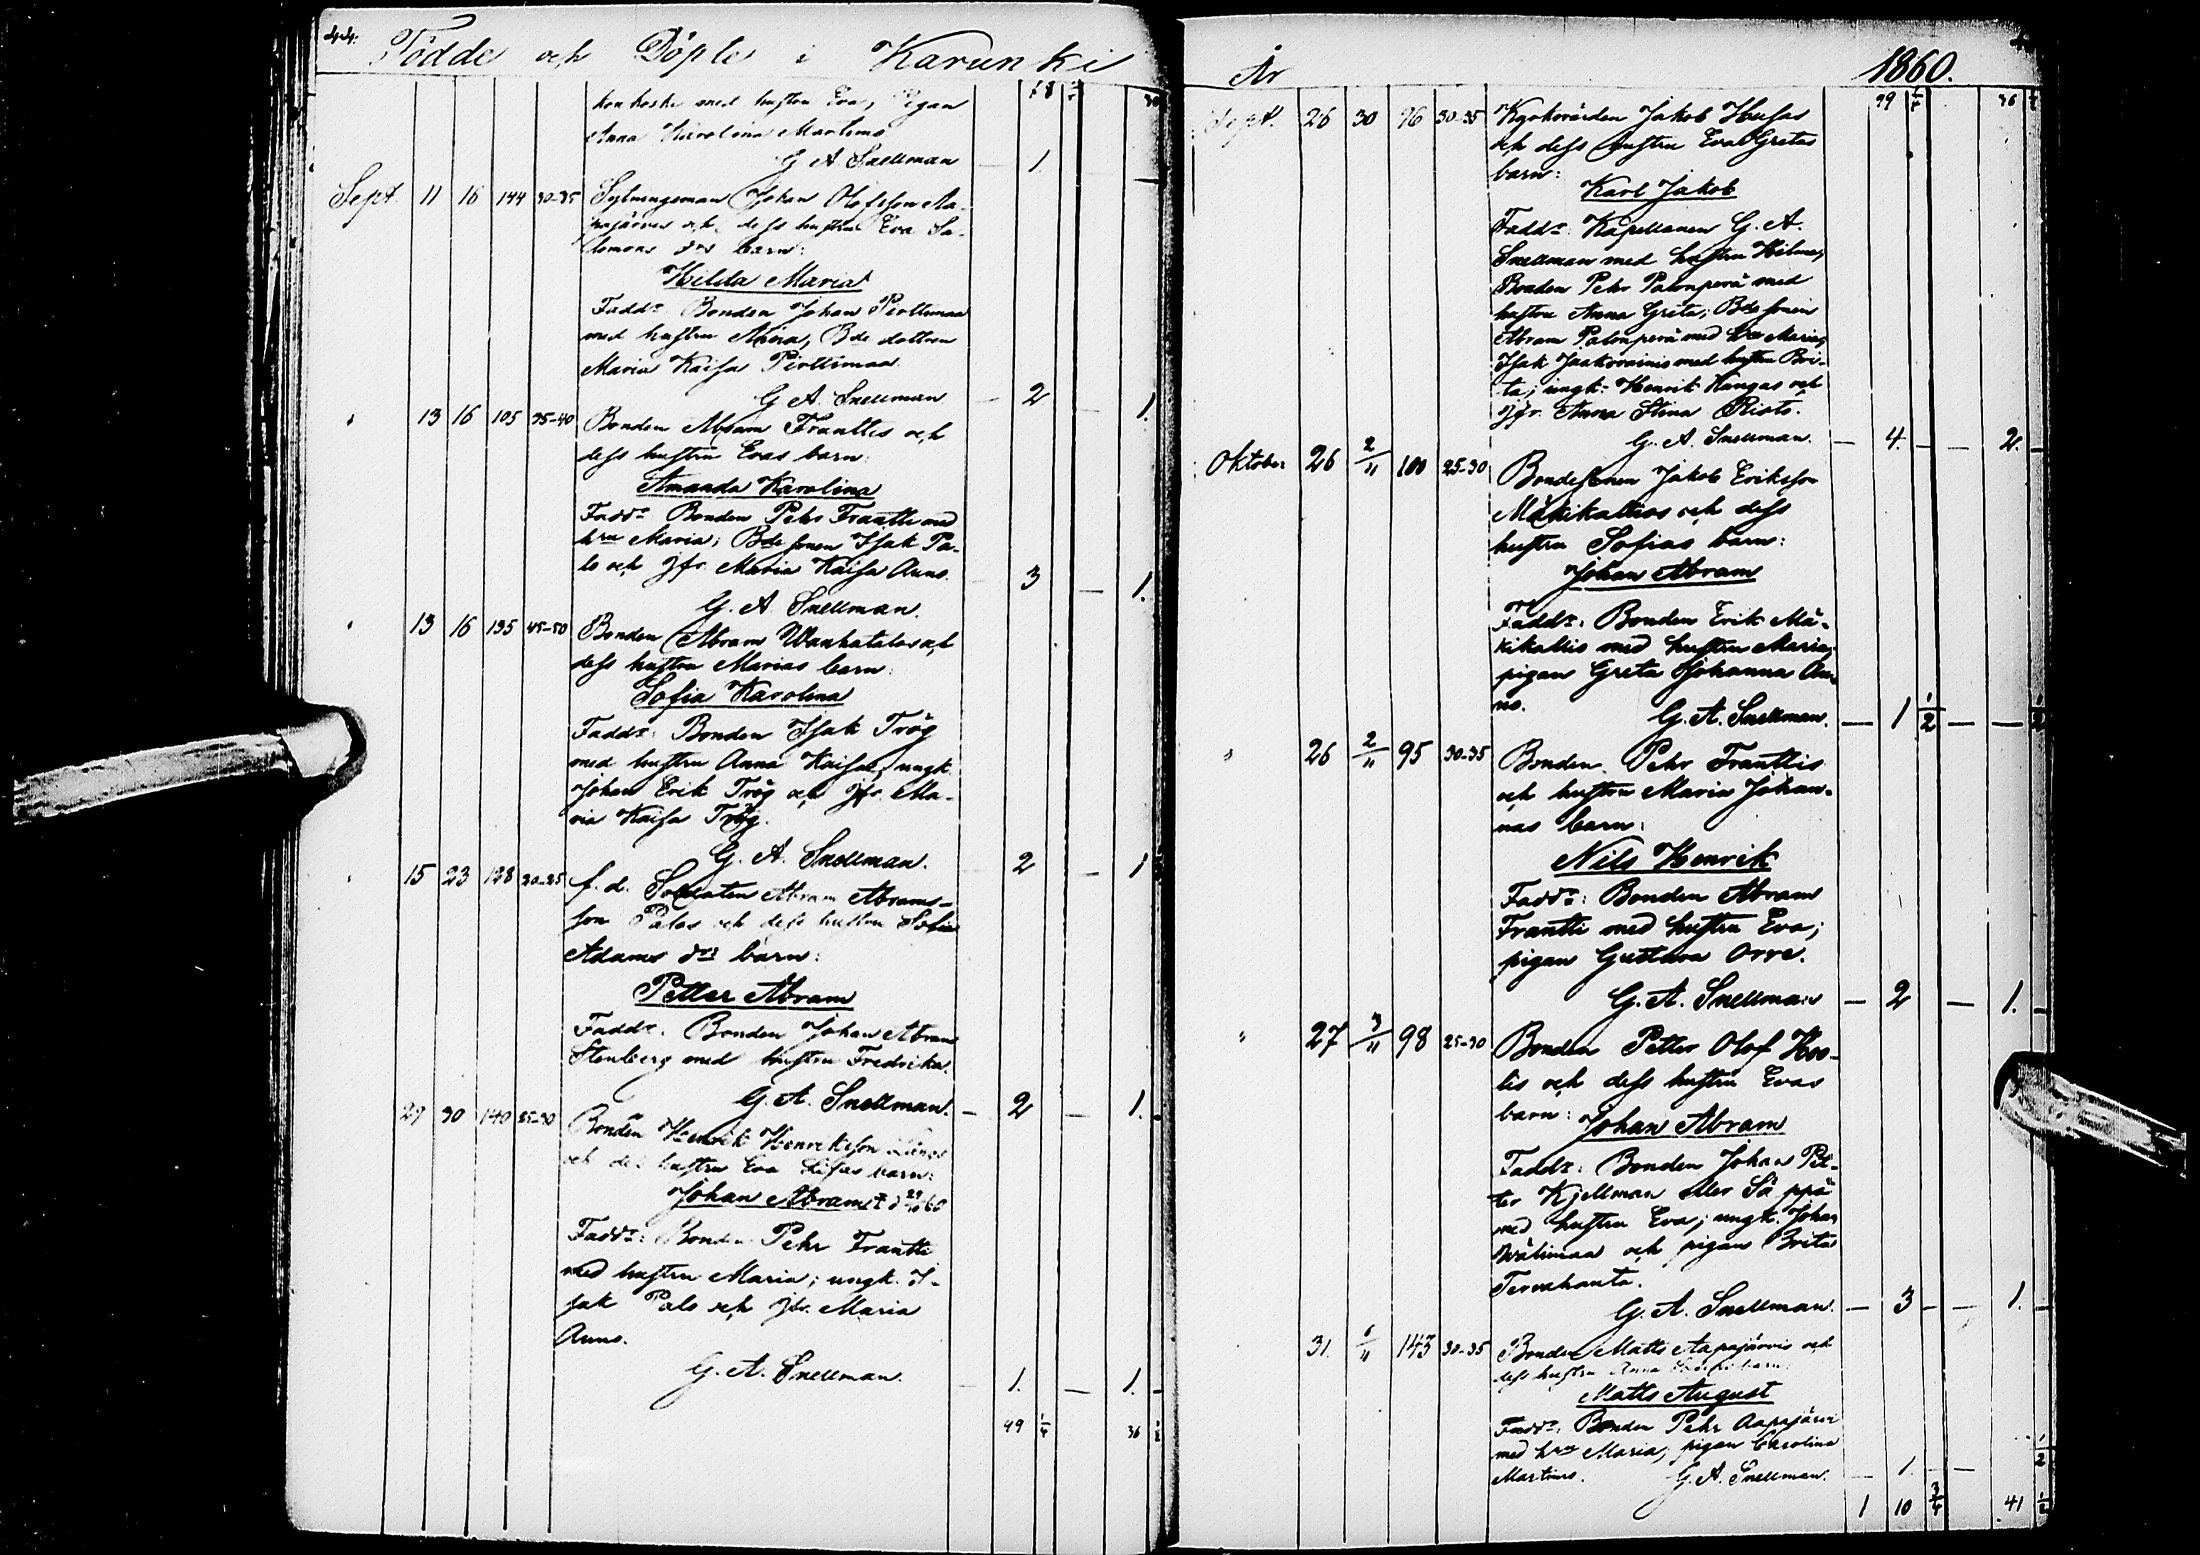 44.
Födde och Döpte i Karunki
med hustru Eva, Pigan
Anna Karolina Martimo
G A Snellman 1.
Sept. 11 16 144 30-35 Sytningsman Johan Olofsson Aa-
pajärvis och dess hustru Eva Sa-
lomons drs barn:
Hilda Maria
Faddr: Bonden Johan Pirttimaa
med hustru Maria, Bde dottren
Maria Kaisa Pirttimaa.
G A Snellman — 2 — 1.
" 13 16 105 35-40 Bonden Abram Franttis och
dess hustru Evas barn:
Amanda Karolina
Faddr Bonden Pehr Frantti med
hru Maria; Bde sonen Isak Pa-
lo och Jfr. Maria Kaisa Auno. 3 — 1.
G. A. Snellman.
" 13 16 135 45-50 Bonden Abram Wanhatalos och
dess hustru Marias barn:
Sofia Karolina
Faddr: Bonden Isak Trög
med hustru Anna Kaisa, ungk.
Johan Erik Trög och Jfr. Ma-
ria Kaisa Trög.
G. A. Snellman. 2 — 1
" 15 23 128 20-25 f. d. Soldaten Abram Abrams-
son Palos och dess hustru Sofia
Adams drs barn:
Petter Abram
Faddr: Bonden Johan Abram
Stenberg med hustru Fredrika.
G. A. Snellman. — 2 — 1.
29 30 140 25-30 Bonden Henrik Henriksson
och dess hustru Eva Lisas barn:
Johan Abram † d 29/10 60
Faddr: Bonden Pehr Frantti
med hustru Maria; ungk. I-
sak Palo och Jfr. Maria
Auno.
G. A. Snellman. — 1. — 1.
49 1/4 36 1/2
År 1860.
49 1/4 36 1/2
Sept. 26 30 96 30-35 Kyrkovärden Jakob Husas
och dess hustru Eva Gretas
barn:
Karl Jakob
Faddr: Kapellanen G. A.
Snellman med hustru Hilma,
Bonden Pehr Palonperä med
hustru Anna Greta; Bde sonen
Abram Palonperä med hru Maria,
Isak Jaakonainis med hustru Bri-
ta; ungk: Henrik Kangas och
Jfr. Anna Stina Risto.
G. A. Snellman. — 4. — 2.
Oktober 26 2/11 100 25-30 Bondesonen Jakob Eriksson
Mäkikallios och dess
hustru Sofias barn:
Johan Abram
Faddr: Bonden Erik Mä-
kikallis med hustru Maria;
pigan Greta Johanna Au-
no.
G. A. Snellman. — 1 1/2 — — 1/2
" 26 2/11 95 30-35 Bonden Pehr Franttis
och hustru Maria Johan-
nas barn:
Nils Henrik
Faddr: Bonden Abram
Frantti med hustru Eva;
pigan Gustava Orre.
G. A. Snellman — 2 — 1.
" 27 3/11 98 25-30 Bonden Petter Olof
och dess hustru Evas
barn: Johan Abram
Faddr: Bonden Johan Pet-
ter Kjellman eller Säppä
med hustru Eva; ungk. Johan
Wälimaa och pigan Brita
Tervahauta.
G. A. Snellman. — 3 — 1.
31. 6/11 143 30-35 Bonden Matts Aapajärvis och
dess hustru Anna barn:
Matts August
Faddr: Bonden Pehr Aapajärvi
med hru Maria, pigan Carolina
Martimo. G. A. Snellman. — 1. — 1/2
1 10 3/4 41 1/2